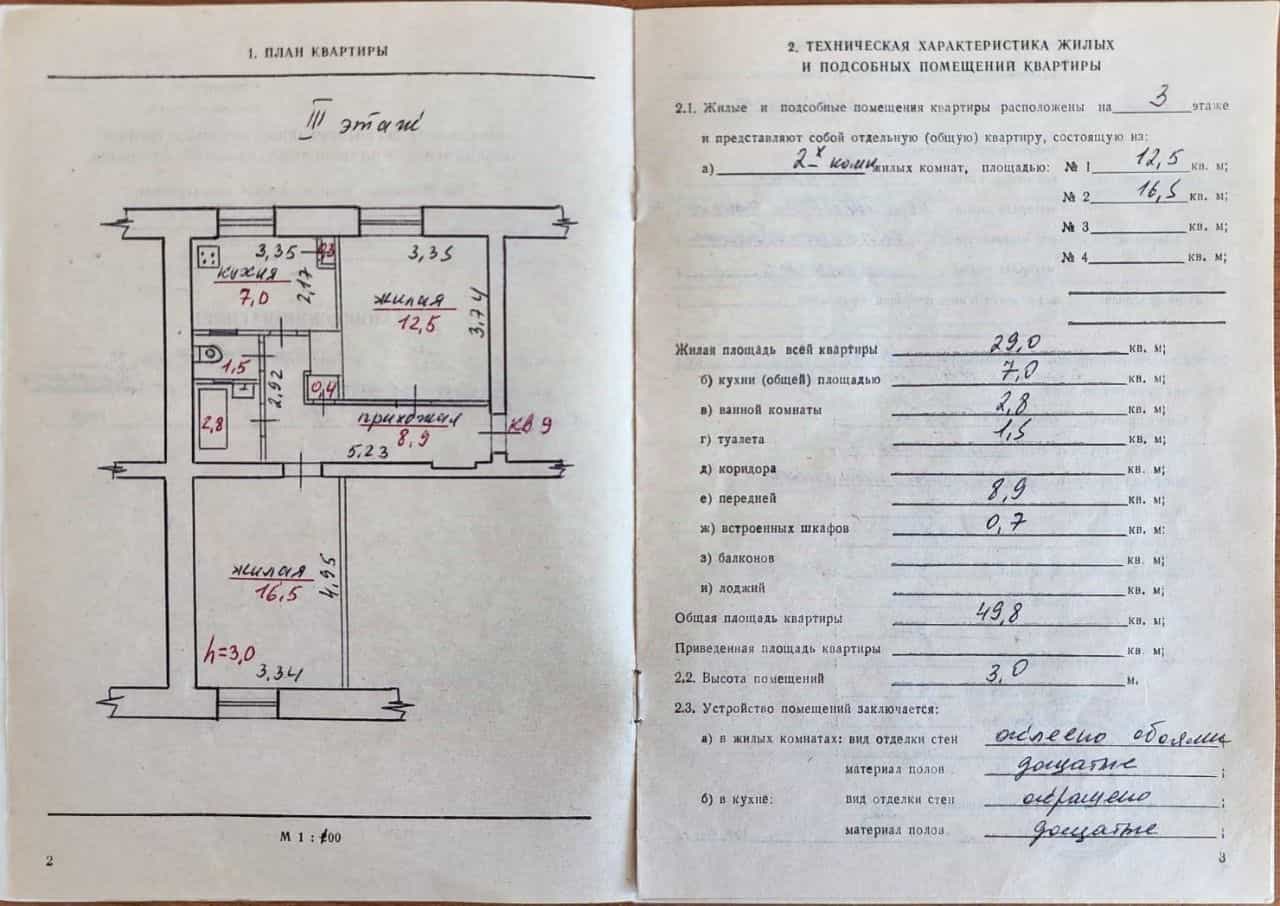 1. ПЛАН КВАРТИРЫ
III этаж
3,35
0,3
3,35
кухня
7,0
2,17
жилая
12,5
3,74
1,5
2,92
0,4
2,8
прихожая
8,9
кв 9
5,23
жилая
16,5
4,95
h=3,0
3,34
М 1 : 100
2
2. ТЕХНИЧЕСКАЯ ХАРАКТЕРИСТИКА ЖИЛЫХ
И ПОДСОБНЫХ ПОМЕЩЕНИЙ КВАРТИРЫ
2.1. Жилые и подсобные помещения квартиры расположены на 3 этаже
и представляют собой отдельную (общую) квартиру, состоящую из:
а) 2-х комн жилых комнат, площадью: № 1 12,5 кв. м;
№ 2 16,5 кв. м;
№ 3 кв. м;
№ 4 кв. м;
Жилая площадь всей квартиры 29,0 кв. м;
б) кухни (общей) площадью 7,0 кв. м;
в) ванной комнаты 2,8 кв. м;
г) туалета 1,5 кв. м;
д) коридора кв. м;
е) передней 8,9 кв. м;
ж) встроенных шкафов 0,7 кв. м:
з) балконов кв. м;
и) лоджий кв. м;
Общая площадь квартиры 49,8 кв. м;
Приведенная площадь квартиры кв. м;
2.2. Высота помещений 3,0 м.
2.3. Устройство помещений заключается:
а) в жилых комнатах: вид отделки стен оклеено обоями
материал полов дощатые ;
б) в кухне: вид отделки стен окрашено ;
материал полов дощатые ;
3